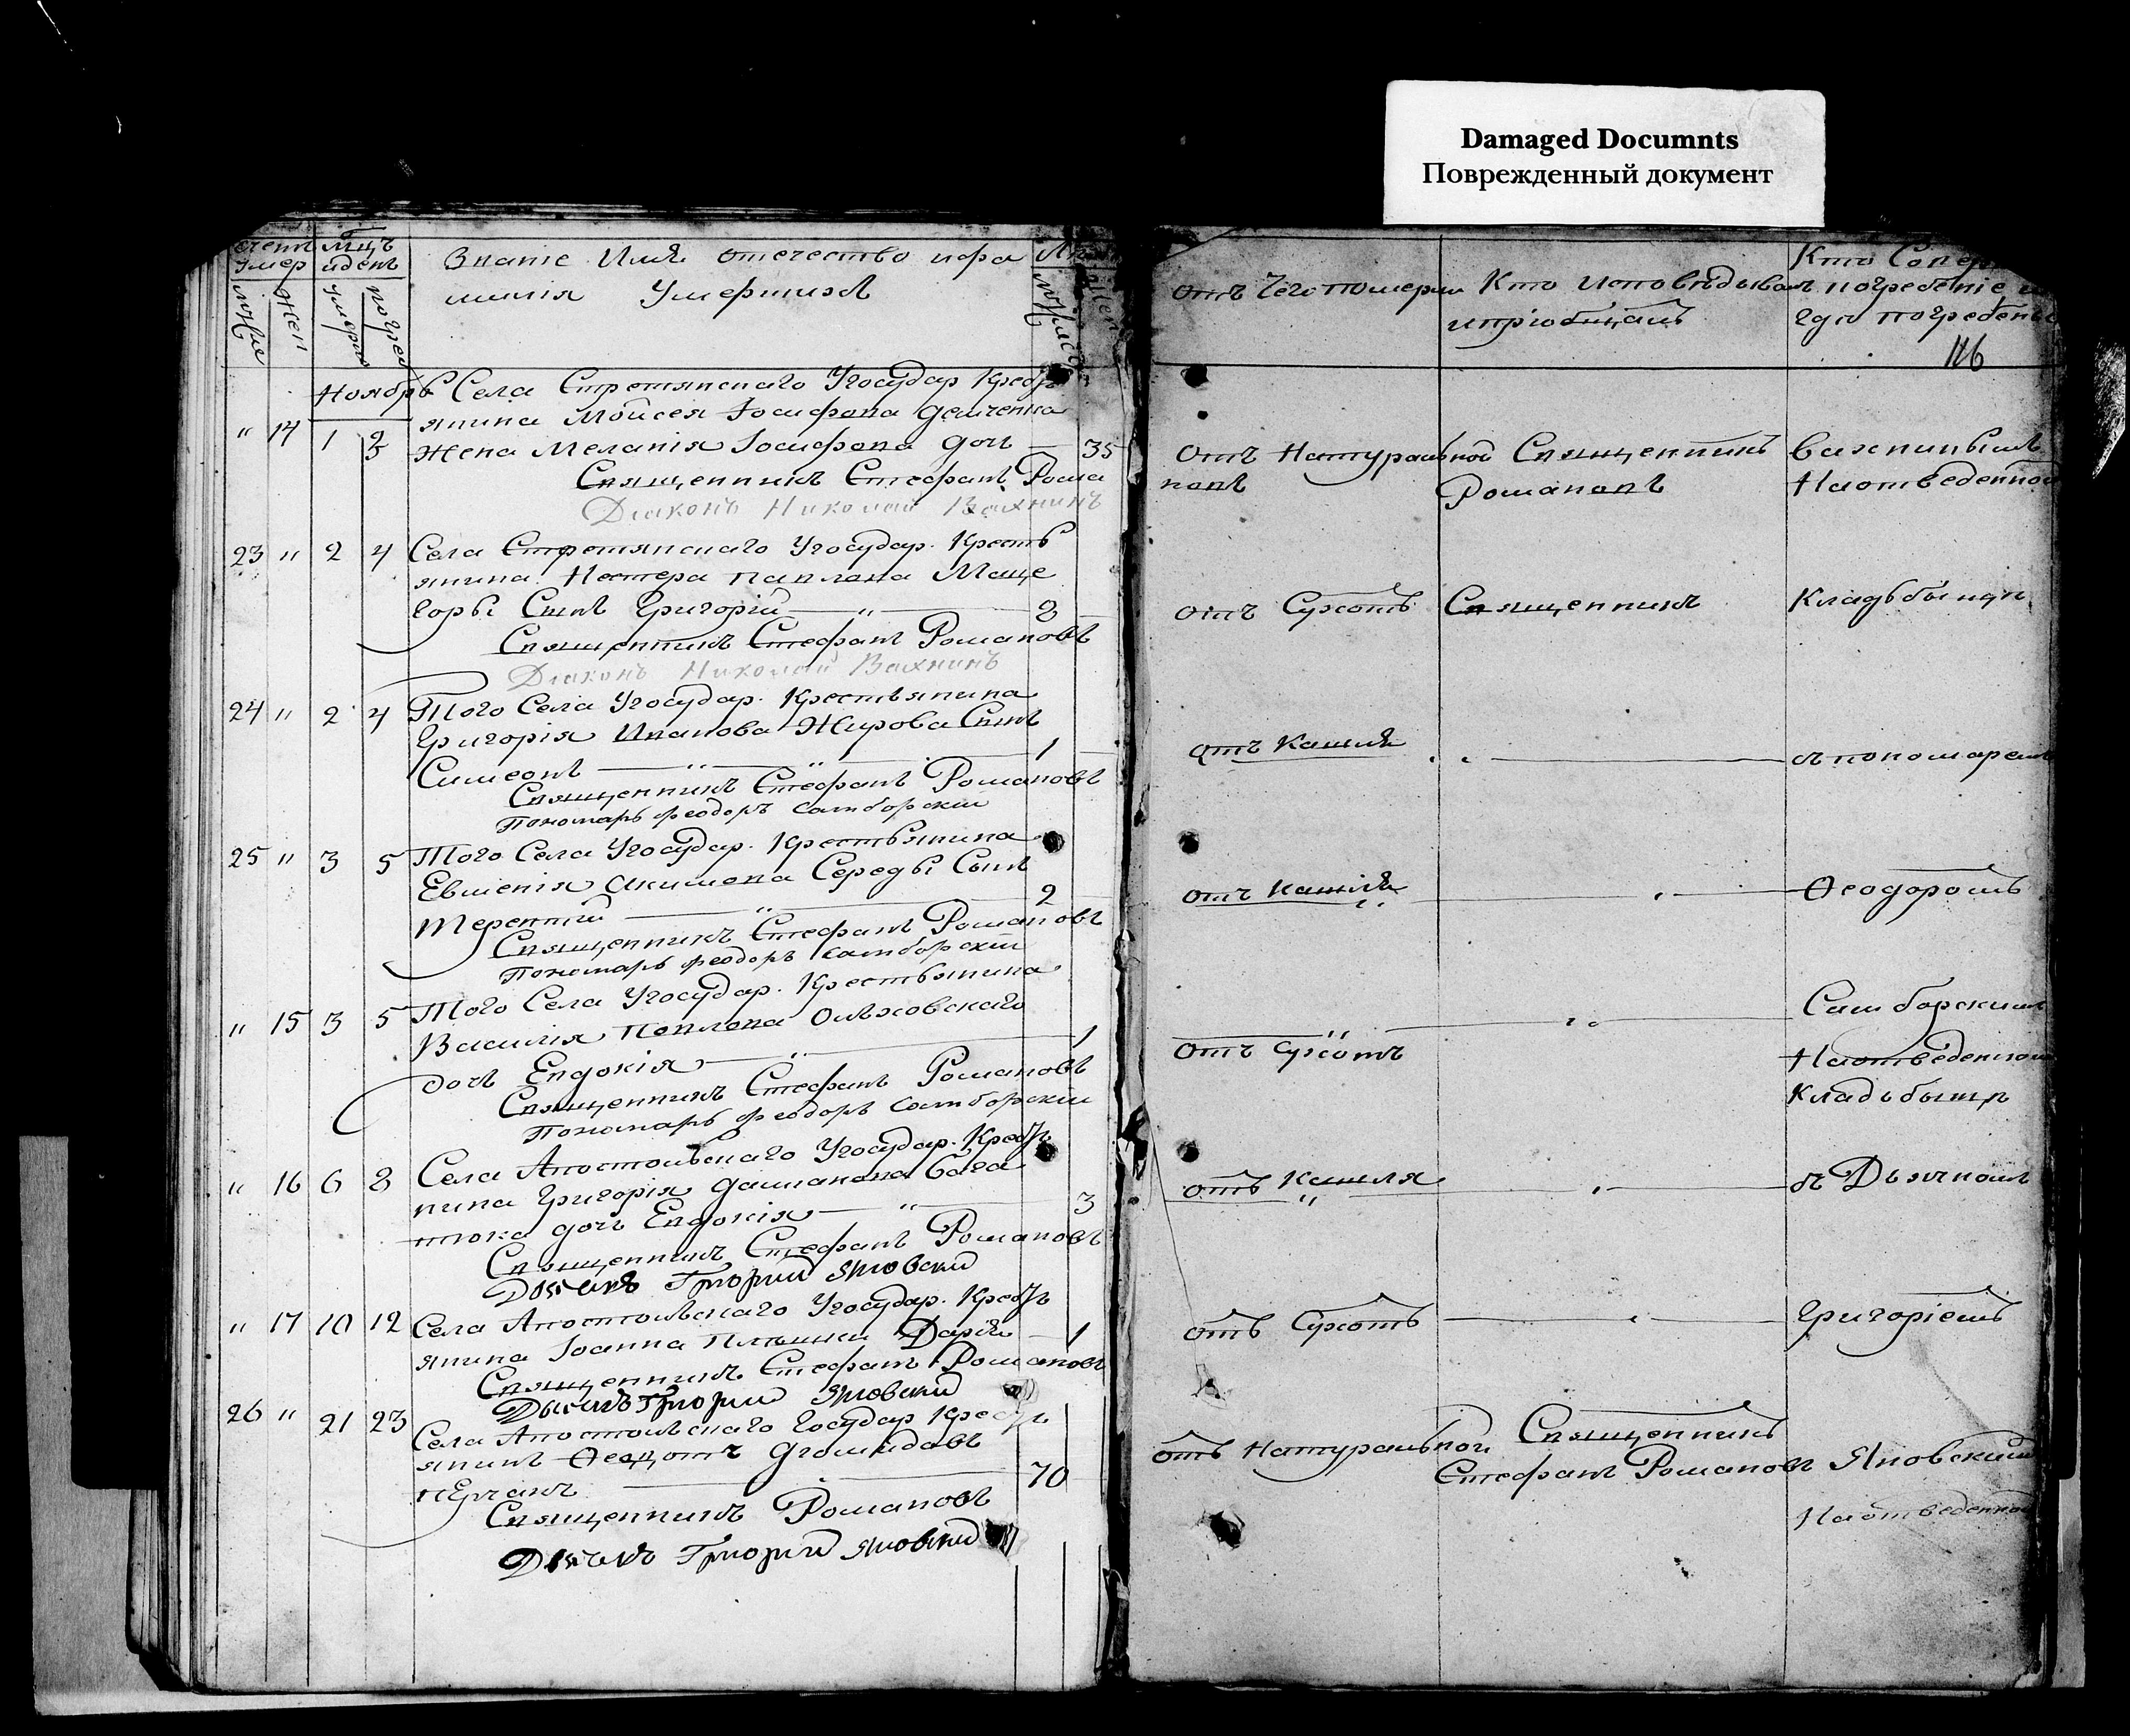 Damaged Documnts
Поврежденный документ
счетъ умер
Мцъ и день
Званіе Имя отечество и фа
милія Умершихъ
муже
жен
умерш
погреб
Ноябрь
Села Стретянскаго Угосудар Крес
янина Мойсея Іосифова
" 14 1 3 Жена Меланія Іосифова дочь — 35
Священникъ Стефанъ Рома
Діаконъ Николай Вахнинъ
23 " 2 4 Села Стретянскаго Угосудар. Кресть
янина Нестера Павлова Маще
горы Сынъ Григорій — " — 2
Священникъ Стефанъ Романовъ
Діаконъ Николай Вахнинъ
24 " 2 4 Того Села Угосудар. Крестьянина
Григорія Иванова Жирова Сынъ
Симеонъ — " — " — 1
Священникъ Стефанъ Романовъ
Пономарь Феодоръ Самборскій
25 " 3 5 Того Села Угосудар. Крестьянина
Евменія Акимова Середы Сынъ
Терентій — " — 2
Священникъ Стефанъ Романовъ
Пономарь Феодоръ Самборскій
" 15 3 5 Того Села Угосудар. Крестьянина
Василія Павлова Ольховскаго
дочь Евдокія — " — 1
Священникъ Стефанъ Романовъ
Пономарь Феодоръ Самборскій
" 16 6 8 Села Апостольскаго Угосудар. Крес
нина Григорія Даміанова Бага
тюка дочь Евдокія — " — 3
Священникъ Стефанъ Романовъ
Дьячекъ Григорий Яновский
" 17 10 12 Села Апостольскаго Угосудар. Крес
янина Іоанна Дарія — 1
Священникъ Стефанъ Романовъ
Дьячекъ Григорий Яновский
26 " 21 23 Села Апостольскаго Государ Крес
янинъ
— 70
Священникъ Романовъ
Дьячекъ Григорий Яновский
отъ Чего померли
Кто исповѣдывалъ
и пріобщалъ
Кто
погребеніе и
гдѣ погребены
116
Отъ Натуральной
Священникъ
Романовъ
Вахнинымъ
На отведенной
отъ Сухотъ
Священникъ
Кладьбыщи
отъ Кашля
съ пономаремъ
отъ Кашля
Ѳеодоромъ
отъ Сухотъ
Самборскимъ
На отведенном
Кладьбыщѣ
отъ Кашля
съ Дьячкомъ
отъ Сухотъ
Григоріемъ
отъ Натуральной
Священникъ
Стефанъ Романовъ
Яновскимъ
На отведенной